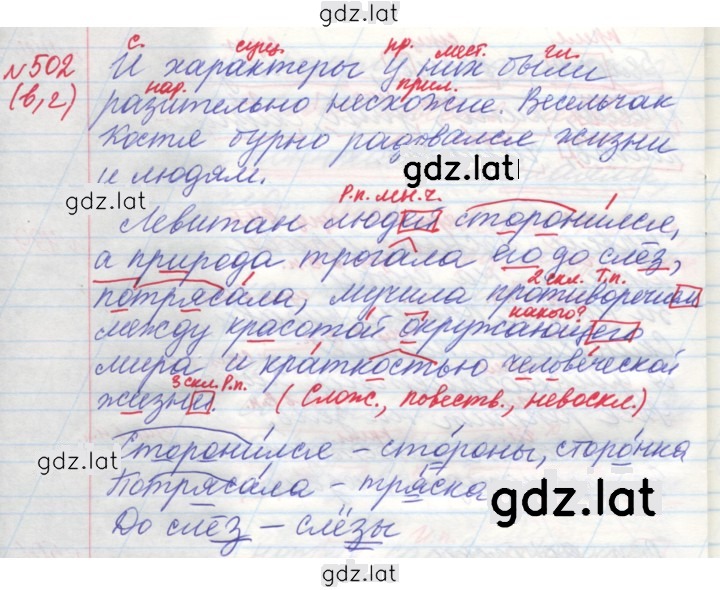 gdz.lat
с. сущ. пр. мест. гл.
№502 И характеры у них были
(в,г) нар. прил.
разительно несхожие. Весельчак
Костя бурно радовался жизни
и людям.
gdz.lat
gdz.lat
Р.п. мн.ч.
Левитан людей сторонился,
а природа трогала его до слёз,
2 скл. Т.п.
потрясала, мучила противоречием
какого?
между красотой окружающего
мира и краткостью человеческой
3 скл. Р.п.
жизни. (Слож., повеств., невоскл.)
Сторонился – стороны, сторонка
gdz.lat
Потрясала – тряска
gdz.lat
До слёз – слёзы
gdz.lat